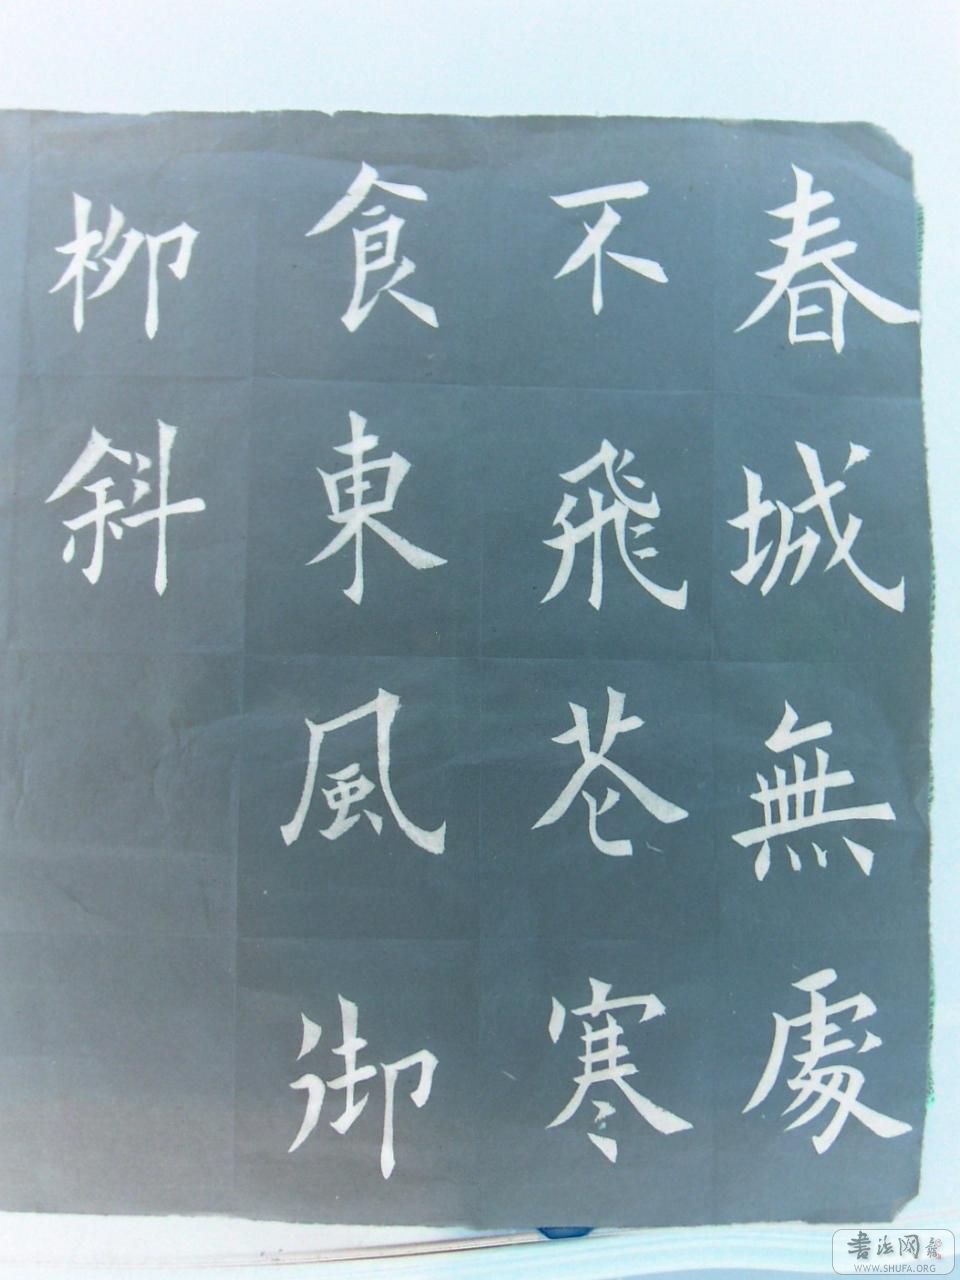 春城無處
不飛花寒
食東風御
柳斜
書法网
WWW.SHUFA.ORG